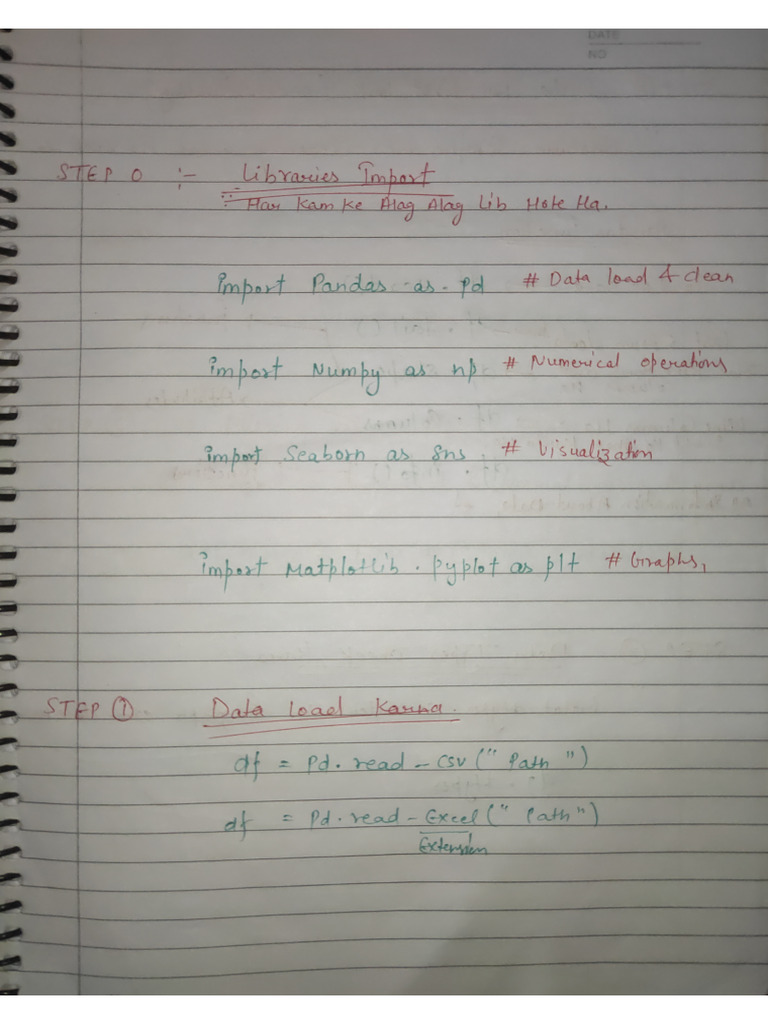 DATE
NO
STEP 0 :- Libraries Import
∵ Har Kam Ke Alag Alag Lib Hote Ha.
import Pandas as pd # Data load & clean
import Numpy as np # Numerical operations
import Seaborn as sns # Visualization
import Matplotlib . pyplot as plt # Graphs,
STEP ① Data Load Karna.
df = Pd. read - csv (" Path ")
df = Pd. read - Excel (" Path ")
Extension